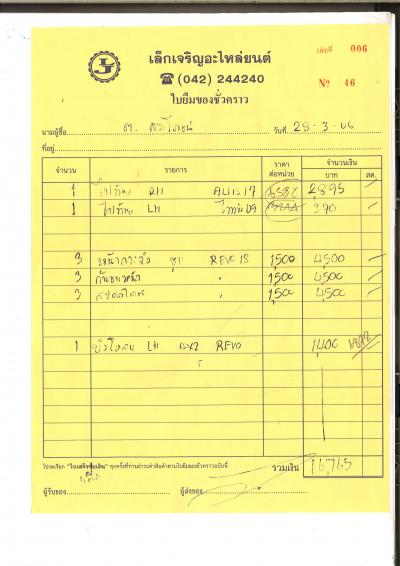 เล่มที่ 006
เล็กเจริญอะไหล่ยนต์
☎ (042) 244240
Nº 46
ใบยืมของชั่วคราว
นามผู้ซื้อ วันที่ 28-3-66
ที่อยู่
จำนวน รายการ ราคา ต่อหน่วย จำนวนเงิน
บาท สต.
1 ไฟท้าย RH ALTIS 17 2,895
1 ไฟท้าย LH 09 390
3 REVO 18 1,500 4500
3 กันชนหน้า " 1,500 4500
3 " 1,500 4,500
1 LH 4x2 REVO 1,400
โปรดเรียก "ใบเสร็จรับเงิน" ทุกครั้งที่ท่านชำระค่าสินค้าตามใบยืมของชั่วคราวฉบับนี้
รวมเงิน 16,765
ผู้รับของ ผู้ส่งของ